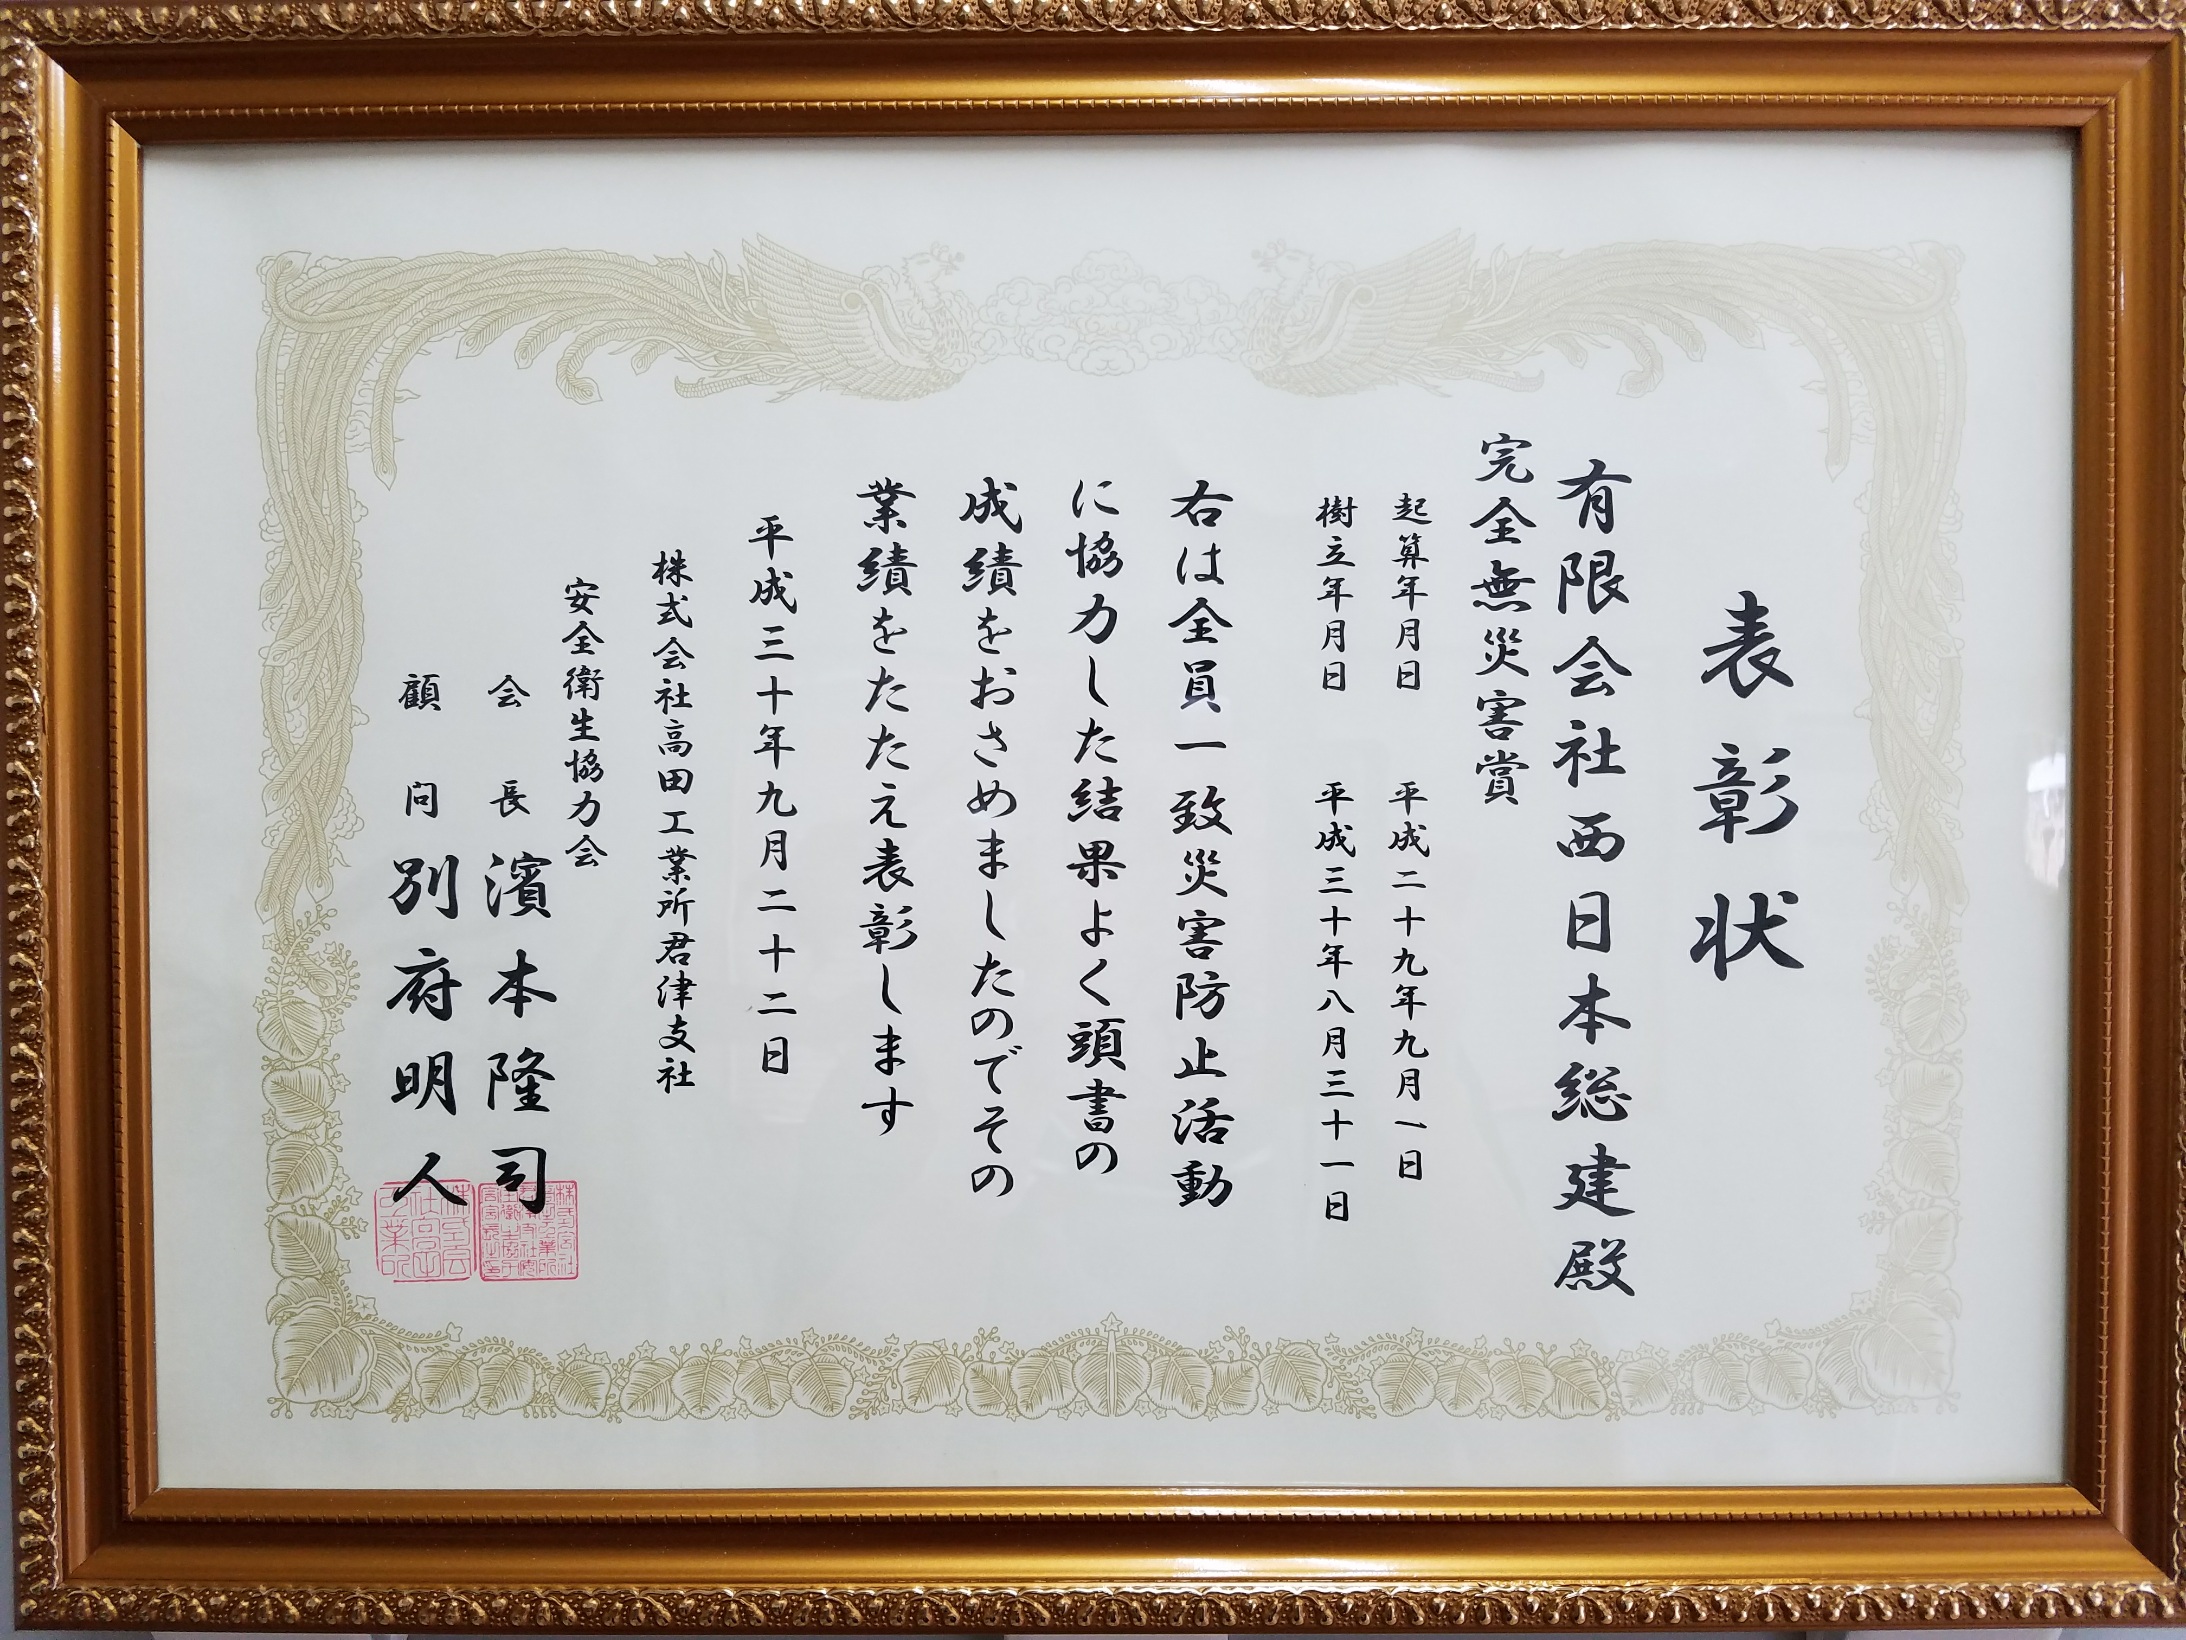 表彰状
有限会社西日本総建殿
完全無災害賞
起算年月日 平成二十九年九月一日
樹立年月日 平成三十年八月三十一日
右は全員一致災害防止活動
に協力した結果よく頭書の
成績をおさめましたのでその
業績をたたえ表彰します
平成三十年九月二十二日
株式会社高田工業所君津支社
安全衛生協力会
会長 濱本隆司
顧問 別府明人